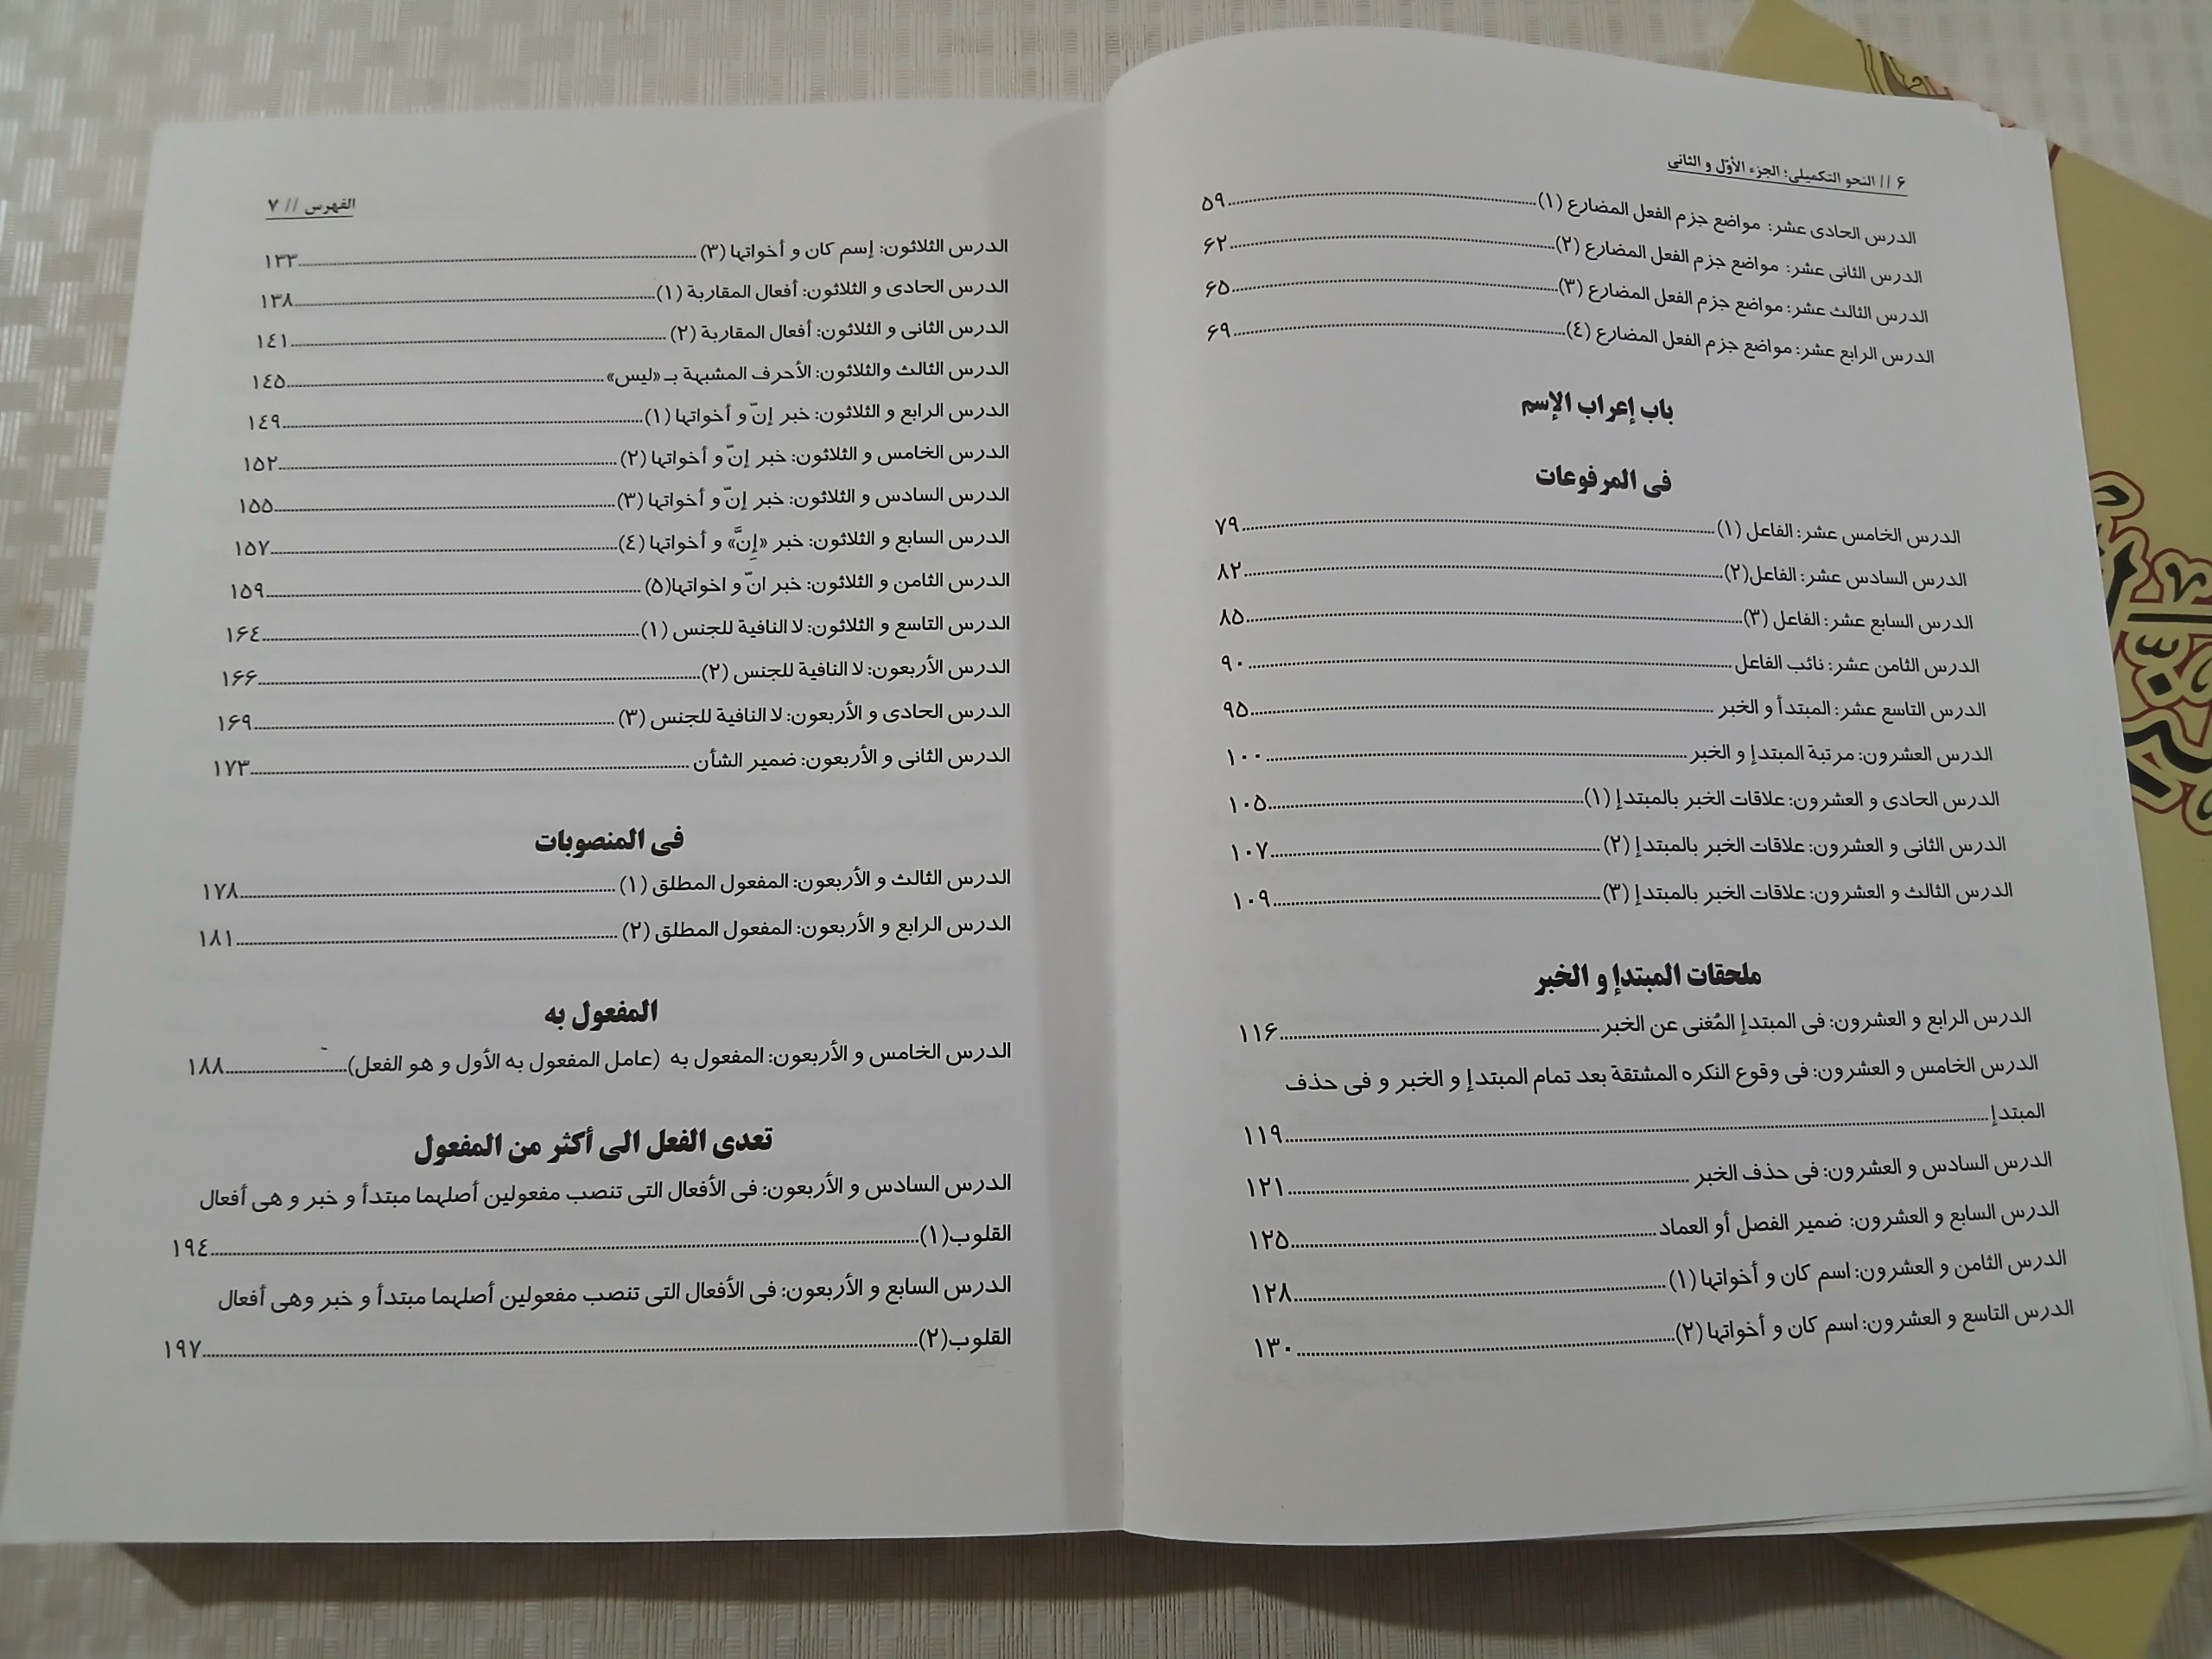 ۶ // النحو التكميلى؛ الجزء الأوّل و الثانى
الدرس الحادى عشر: مواضع جزم الفعل المضارع (١)............۵۹
الدرس الثانى عشر: مواضع جزم الفعل المضارع (٢)............۶۲
الدرس الثالث عشر: مواضع جزم الفعل المضارع (٣)............۶۵
الدرس الرابع عشر: مواضع جزم الفعل المضارع (٤)............۶۹
باب إعراب الإسم
فى المرفوعات
الدرس الخامس عشر: الفاعل (١)............۷۹
الدرس السادس عشر: الفاعل(٢)............۸۲
الدرس السابع عشر: الفاعل (٣)............۸۵
الدرس الثامن عشر: نائب الفاعل............۹۰
الدرس التاسع عشر: المبتدأ و الخبر............۹۵
الدرس العشرون: مرتبة المبتدإ و الخبر............۱۰۰
الدرس الحادى و العشرون: علاقات الخبر بالمبتدإ (١)............۱۰۵
الدرس الثانى و العشرون: علاقات الخبر بالمبتدإ (٢)............۱۰۷
الدرس الثالث و العشرون: علاقات الخبر بالمبتدإ (٣)............۱۰۹
ملحقات المبتدإ و الخبر
الدرس الرابع و العشرون: فى المبتدإ المُغنى عن الخبر............۱۱۶
الدرس الخامس و العشرون: فى وقوع النكره المشتقة بعد تمام المبتدإ و الخبر و فى حذف
المبتدإ............۱۱۹
الدرس السادس و العشرون: فى حذف الخبر............۱۲۱
الدرس السابع و العشرون: ضمير الفصل أو العماد............۱۲۵
الدرس الثامن و العشرون: اسم كان و أخواتها (١)............۱۲۸
الدرس التاسع و العشرون: اسم كان و أخواتها (٢)............۱۳۰
الفهرس // ۷
الدرس الثلاثون: إسم كان و أخواتها (٣)............۱۳۳
الدرس الحادى و الثلاثون: أفعال المقاربة (١)............۱۳۸
الدرس الثانى و الثلاثون: أفعال المقاربة (٢)............۱٤۱
الدرس الثالث والثلاثون: الأحرف المشبهة بـ «ليس»............۱٤۵
الدرس الرابع و الثلاثون: خبر إنّ و أخواتها (١)............۱٤۹
الدرس الخامس و الثلاثون: خبر إنّ و أخواتها (٢)............۱۵۲
الدرس السادس و الثلاثون: خبر إنّ و أخواتها (٣)............۱۵۵
الدرس السابع و الثلاثون: خبر «إنَّ» و أخواتها (٤)............۱۵۷
الدرس الثامن و الثلاثون: خبر انّ و اخواتها(۵)............۱۵۹
الدرس التاسع و الثلاثون: لا النافية للجنس (١)............۱۶٤
الدرس الأربعون: لا النافية للجنس (٢)............۱۶۶
الدرس الحادى و الأربعون: لا النافية للجنس (٣)............۱۶۹
الدرس الثانى و الأربعون: ضمير الشأن............۱۷۳
فى المنصوبات
الدرس الثالث و الأربعون: المفعول المطلق (١)............۱۷۸
الدرس الرابع و الأربعون: المفعول المطلق (٢)............۱۸۱
المفعول به
الدرس الخامس و الأربعون: المفعول به (عامل المفعول به الأول و هو الفعل)............۱۸۸
تعدى الفعل الى أكثر من المفعول
الدرس السادس و الأربعون: فى الأفعال التى تنصب مفعولين أصلهما مبتدأ و خبر و هى أفعال
القلوب(١)............۱۹٤
الدرس السابع و الأربعون: فى الأفعال التى تنصب مفعولين أصلهما مبتدأ و خبر وهى أفعال
القلوب(٢)............۱۹۷